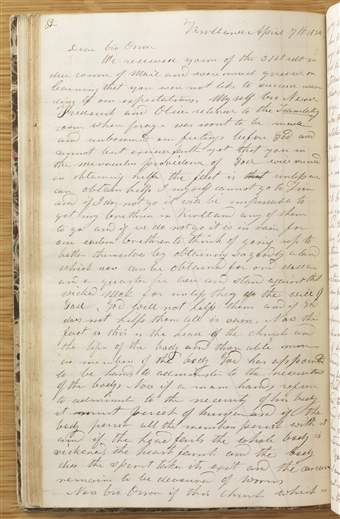 Kirtland April 7th 1834
Dear bro Orson
We received yours of the 31st ult in
due course of mail and were much grieved on
learning that you were not like to succeed accor
ding to our expectations. Myself bro Newel
Frederick and Oliver retired to the translating
room where prayer was wont to be made
and unbosomed our feelings before God and
cannot but exercise faith yet that you in
the miraculous providence of God will succeed
in obtaining help, the fact is unless we
can obtain help I myself cannot go to Zion
and if I do not go it will be impossible to
get my brethren in Kirtland any of them
to go and if we do not go it is in vain for
our eastern brethren to think of going up to
better themselves by obtaining so goodly a land
which now can be obtained for one dollar
and a quarter per acre and stand against that
wicked mob for unless they do the will of
God, God will not help them and if God
does not help them all is vain. Now the
fact is this in the head of the church and
the life of the body and those able men
as members of the body God has appointed
to be hands to administer to the necessities
of the body. Now if a man's hands refuse
to administer to the necessity of his body
it must perish of hunger and if the
body perish all the members perish with it
and if the head fails the whole body is
sickened, the heart faints and the body
dies the spirit takes its exit and the carcase
remains to be devoured of worms.
Now bro Orson if this Church which is